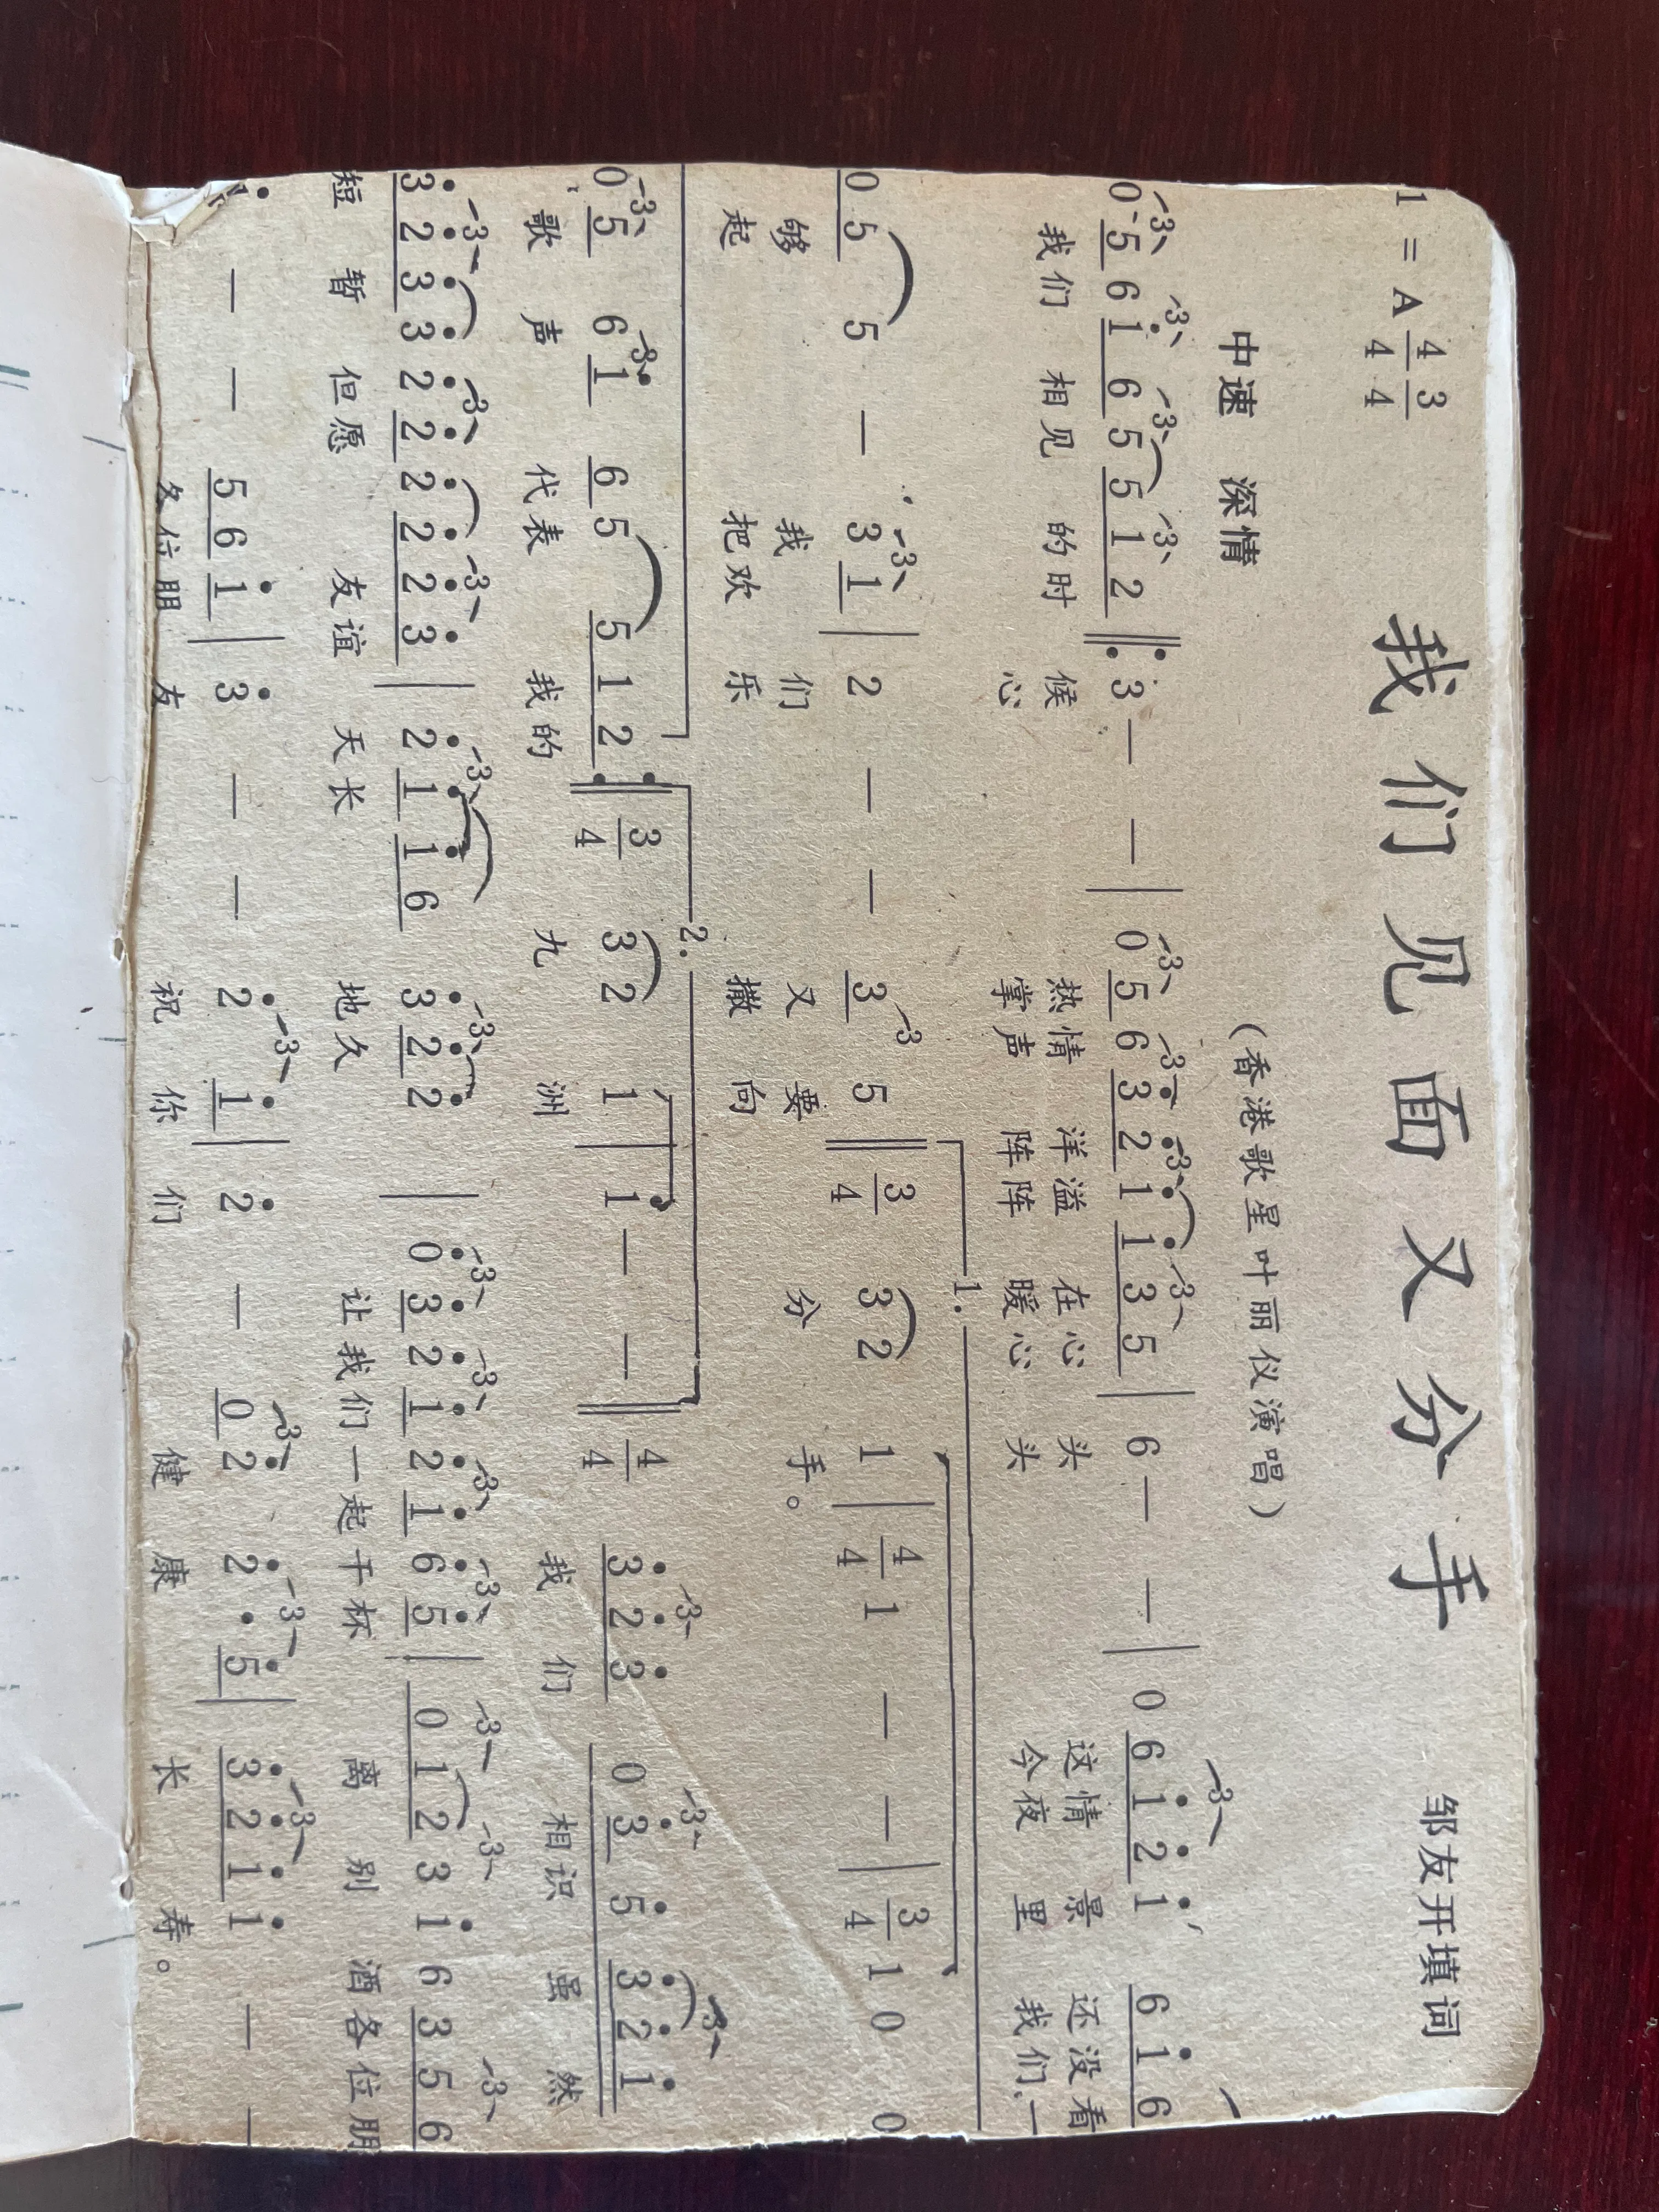 我们见面又分手
1 = A 4/4 3/4
邹友开填词
中速 深情
（香港歌星叶丽仪演唱）
0 5 6 1̇ 6 5 5 1 2 ‖: 3 — — | 0 5 6 3̇ 2̇ 1̇ 1̇ 3 5 | 6 — — | 0 6 1̇ 2̇ 1̇ 6 1̇ 6
我们 相见 的时 候 热情 洋溢 在心 头 这情 景 还没看
心 掌声 阵阵 暖心 头 今夜 里 我们一
0 5 5 — 3 1 | 2 — — 3 5 ‖ 3/4 3 2 1 | 4/4 1 — — | 3/4 1 0 0
够 我 们 又 要 分 手。
起 把欢 乐 撒 向
1.
0 5 6 1̇ 6 5 5 1 2 :‖ 3/4 3 2 1 | 1 — — ‖ 4/4 3̇ 2̇ 3̇ 0 3̇ 5̇ 3̇ 2̇ 1̇
2.
歌 声 代表 我的 九 洲 我 们 相识 虽 然
3̇ 2̇ 3̇ 3̇ 2̇ 2̇ 2̇ 2̇ 2̇ 3̇ | 2̇ 1̇ 1̇ 6 3̇ 2̇ 2̇ | 0 3̇ 2̇ 1̇ 2̇ 1̇ 6̇ 5̇ | 0 1 2 3 1̇ 6 3 5 6
短 暂 但愿 友谊 天长 地久 让我们一起干杯 离 别 酒各位朋
— — 5 6 1̇ | 3̇ — — 2̇ 1̇ | 2̇ — 0 2̇ 2̇ · 5̇ | 3̇ 2̇ 1̇ 1̇ — —
友 祝 你 们 健 康 长 寿。